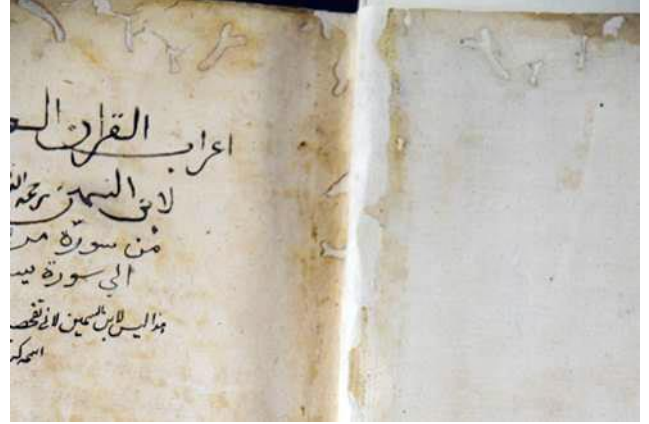 اعراب القران
لابن السمين رحمه
من سورة
الى سورة
هذا ليس لابن السمين لانى
اسمه